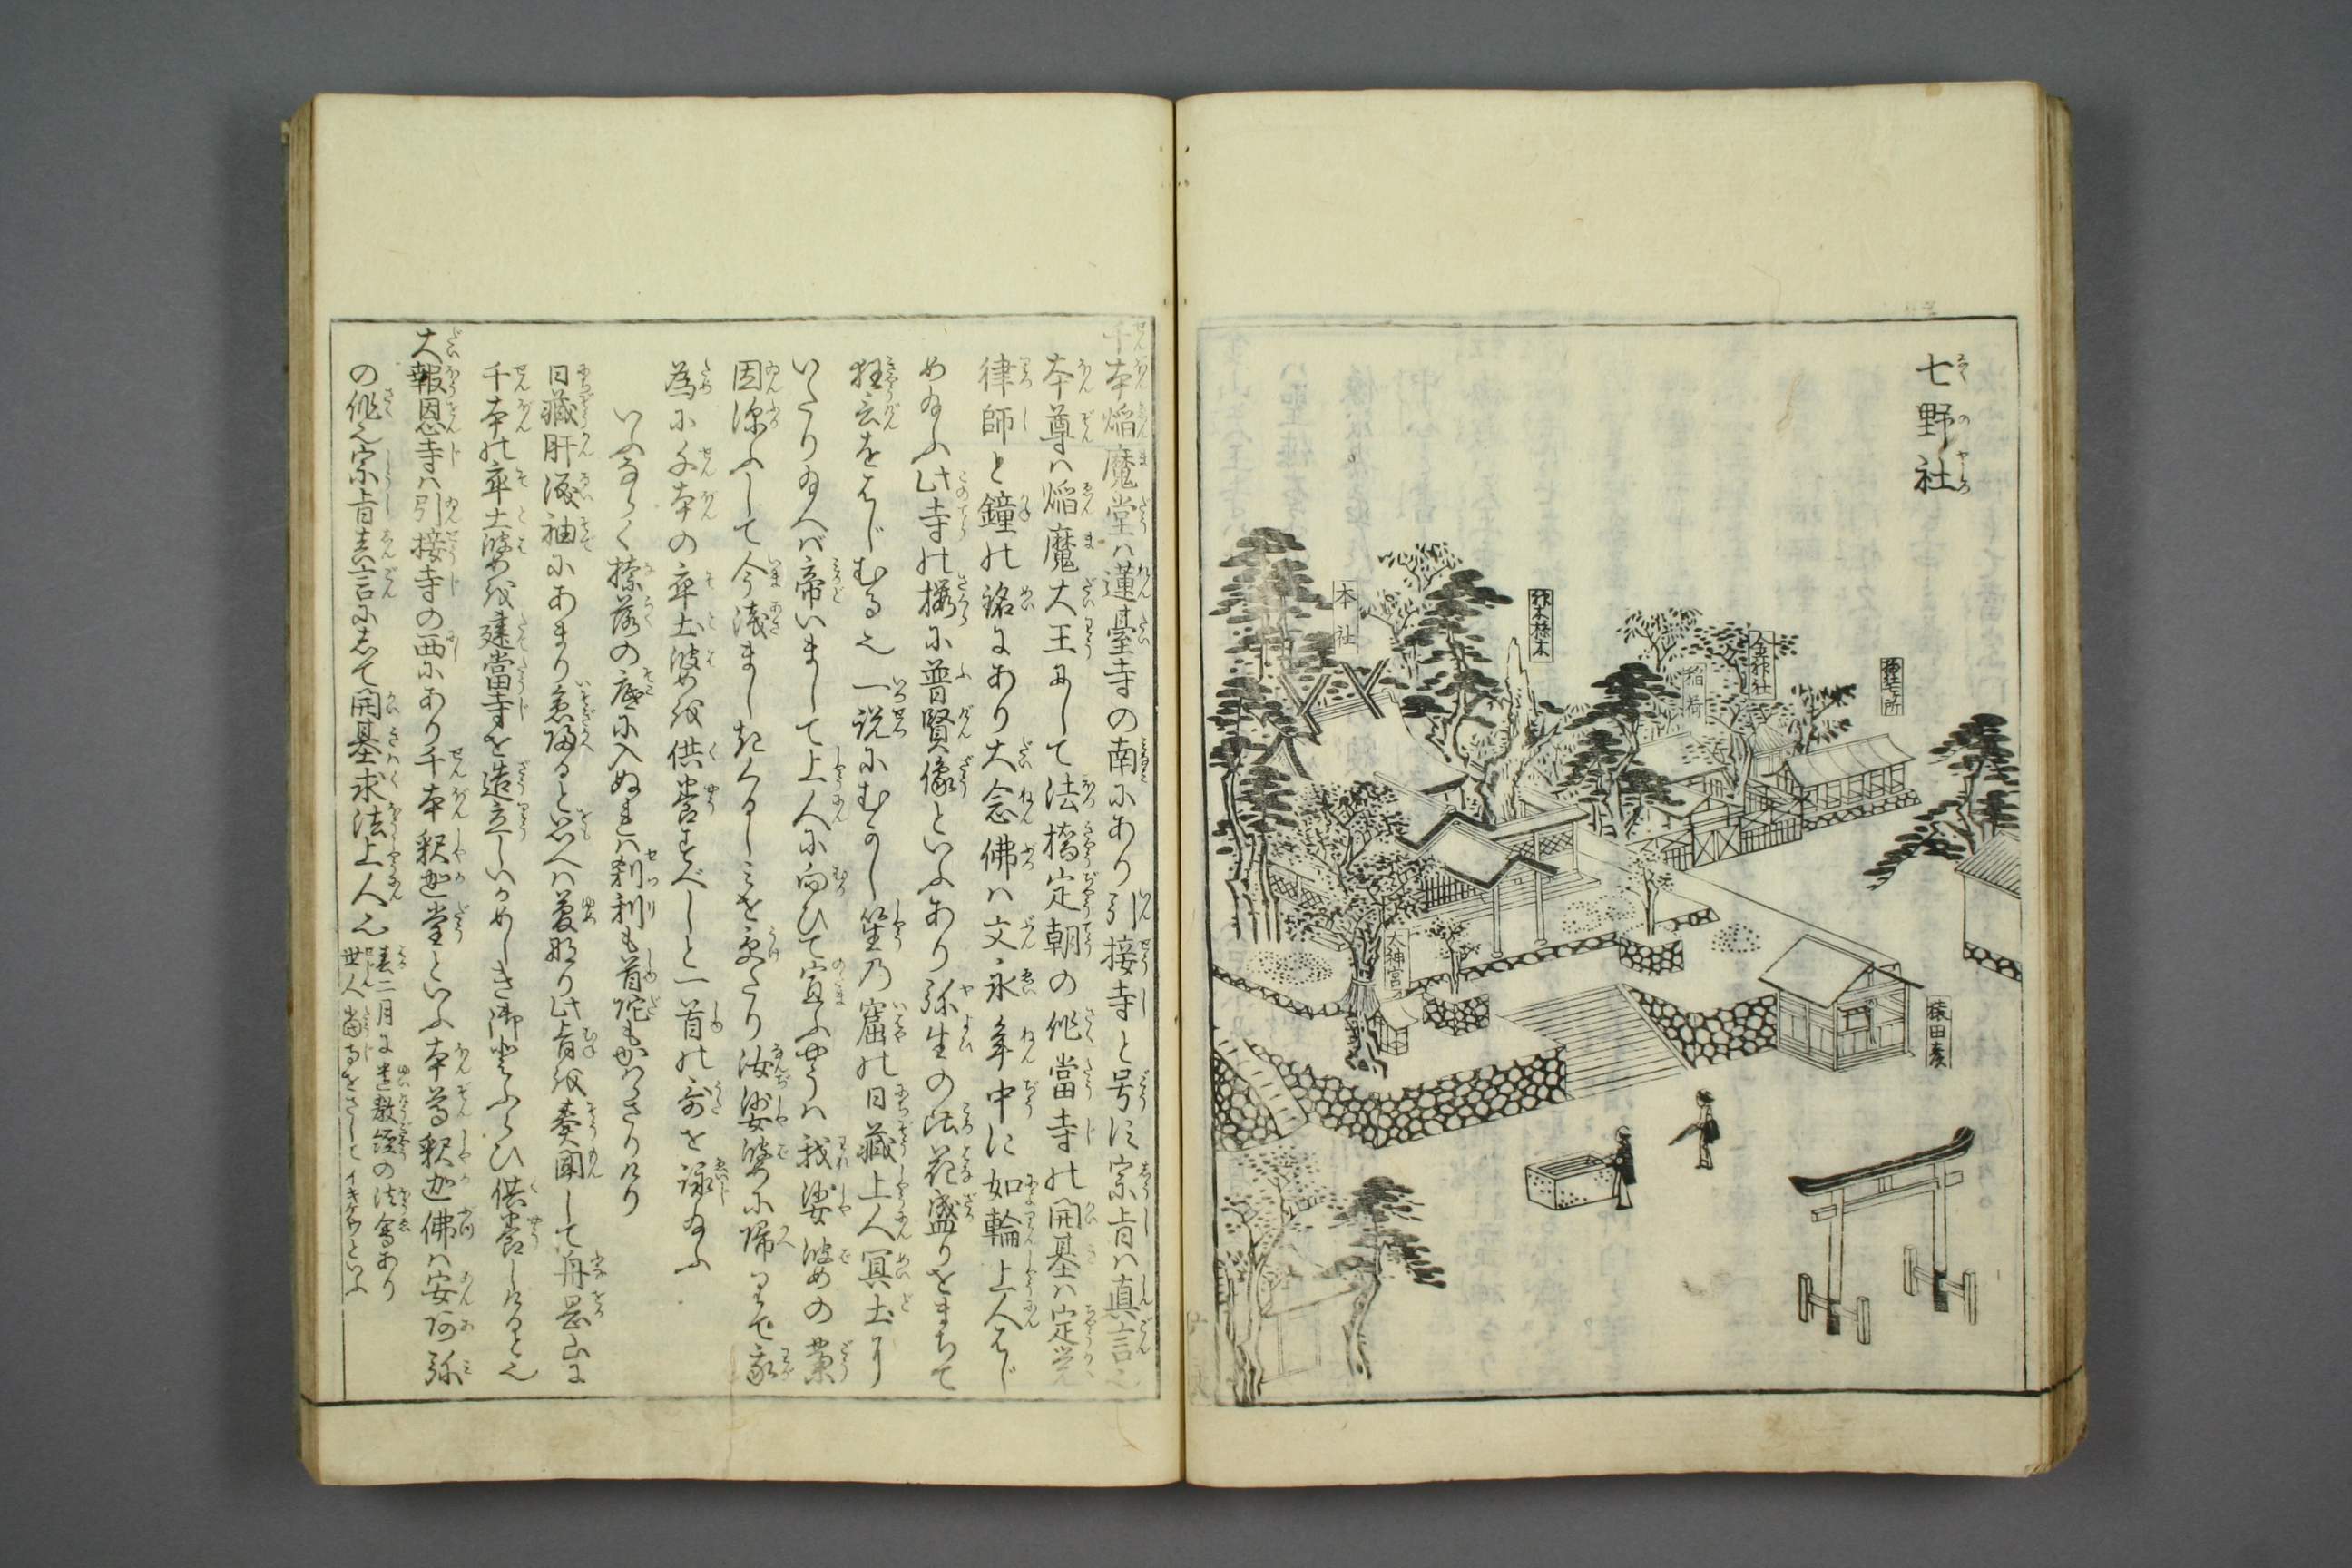 七野社
本社
稲荷
太神宮
猿田彦
千本焔魔堂ハ蓮臺寺の南にあり引接寺と号に宗旨ハ真言也
本尊ハ焔魔大王にして法橋定朝の作當寺の開基ハ定覚
律師と鐘の銘にあり大念佛ハ文永年中に如輪上人はじ
め給ふ此寺の桜に普賢像といふあり弥生の頃花盛りをまちて
狂言をはじむる也一説にむかし笙乃窟の日藏上人冥土に
いたり給へバ帝いまして上人に向ひて宣ふやうハ我娑婆の業
因深ふして今浅ましきくるしミを受たり汝娑婆に帰りて我
為に千本の卒土婆を供養すべしと一首の哥を詠給ふ
いふならく捺落の底に入ぬれハ刹利も首陀もかハらさりけり
日藏肝涙袖にあまり急帰ると思へハ夢なり此旨を奏聞して舟岡山に
千本の卒土婆を建當寺を造立しいかめしき御とふらひ供養しけると也
大報恩寺ハ引接寺の西にあり千本釈迦堂といふ本尊釈迦佛ハ安阿弥
の作也宗旨真言にして開基求法上人也
春二月に遺教經の法會あり
世人當寺をさしてイキケウといふ